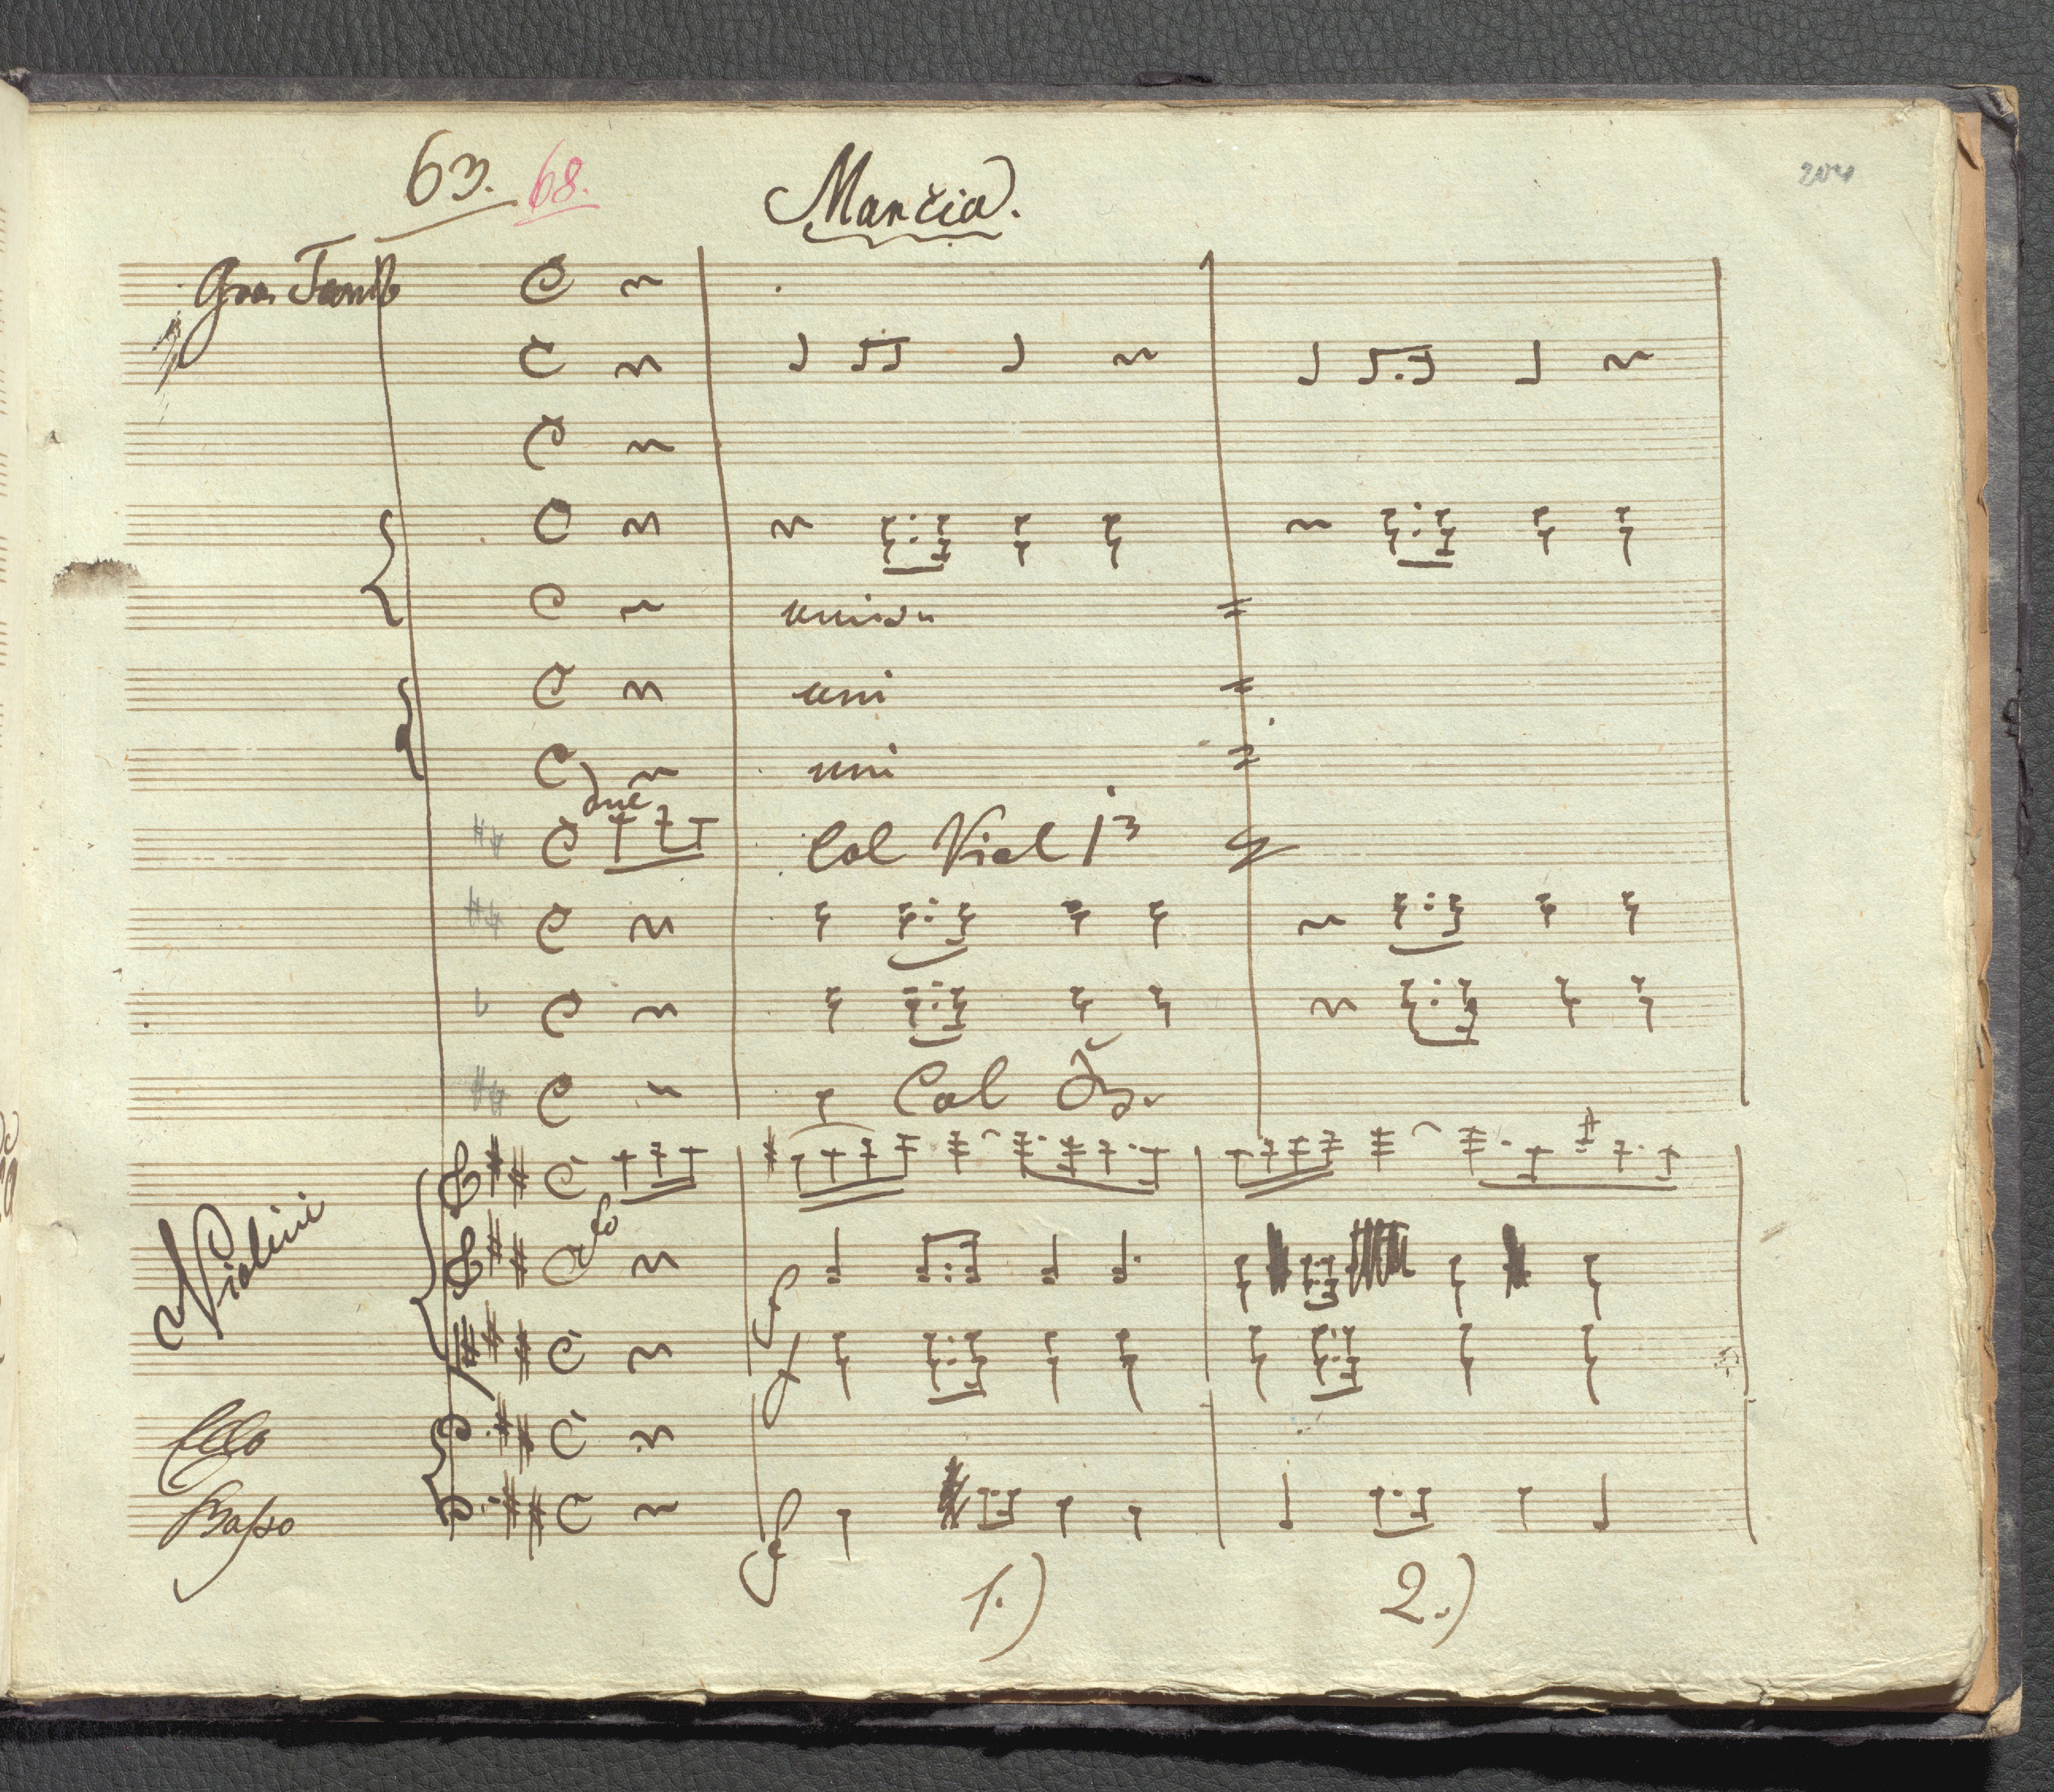 63. 68. Marcia. 204
Gran Tamb
uniso
uni
uni
due
Col Viol 1º
Col
Violini
Cello
Basso
f
f
f
1.) 2.)